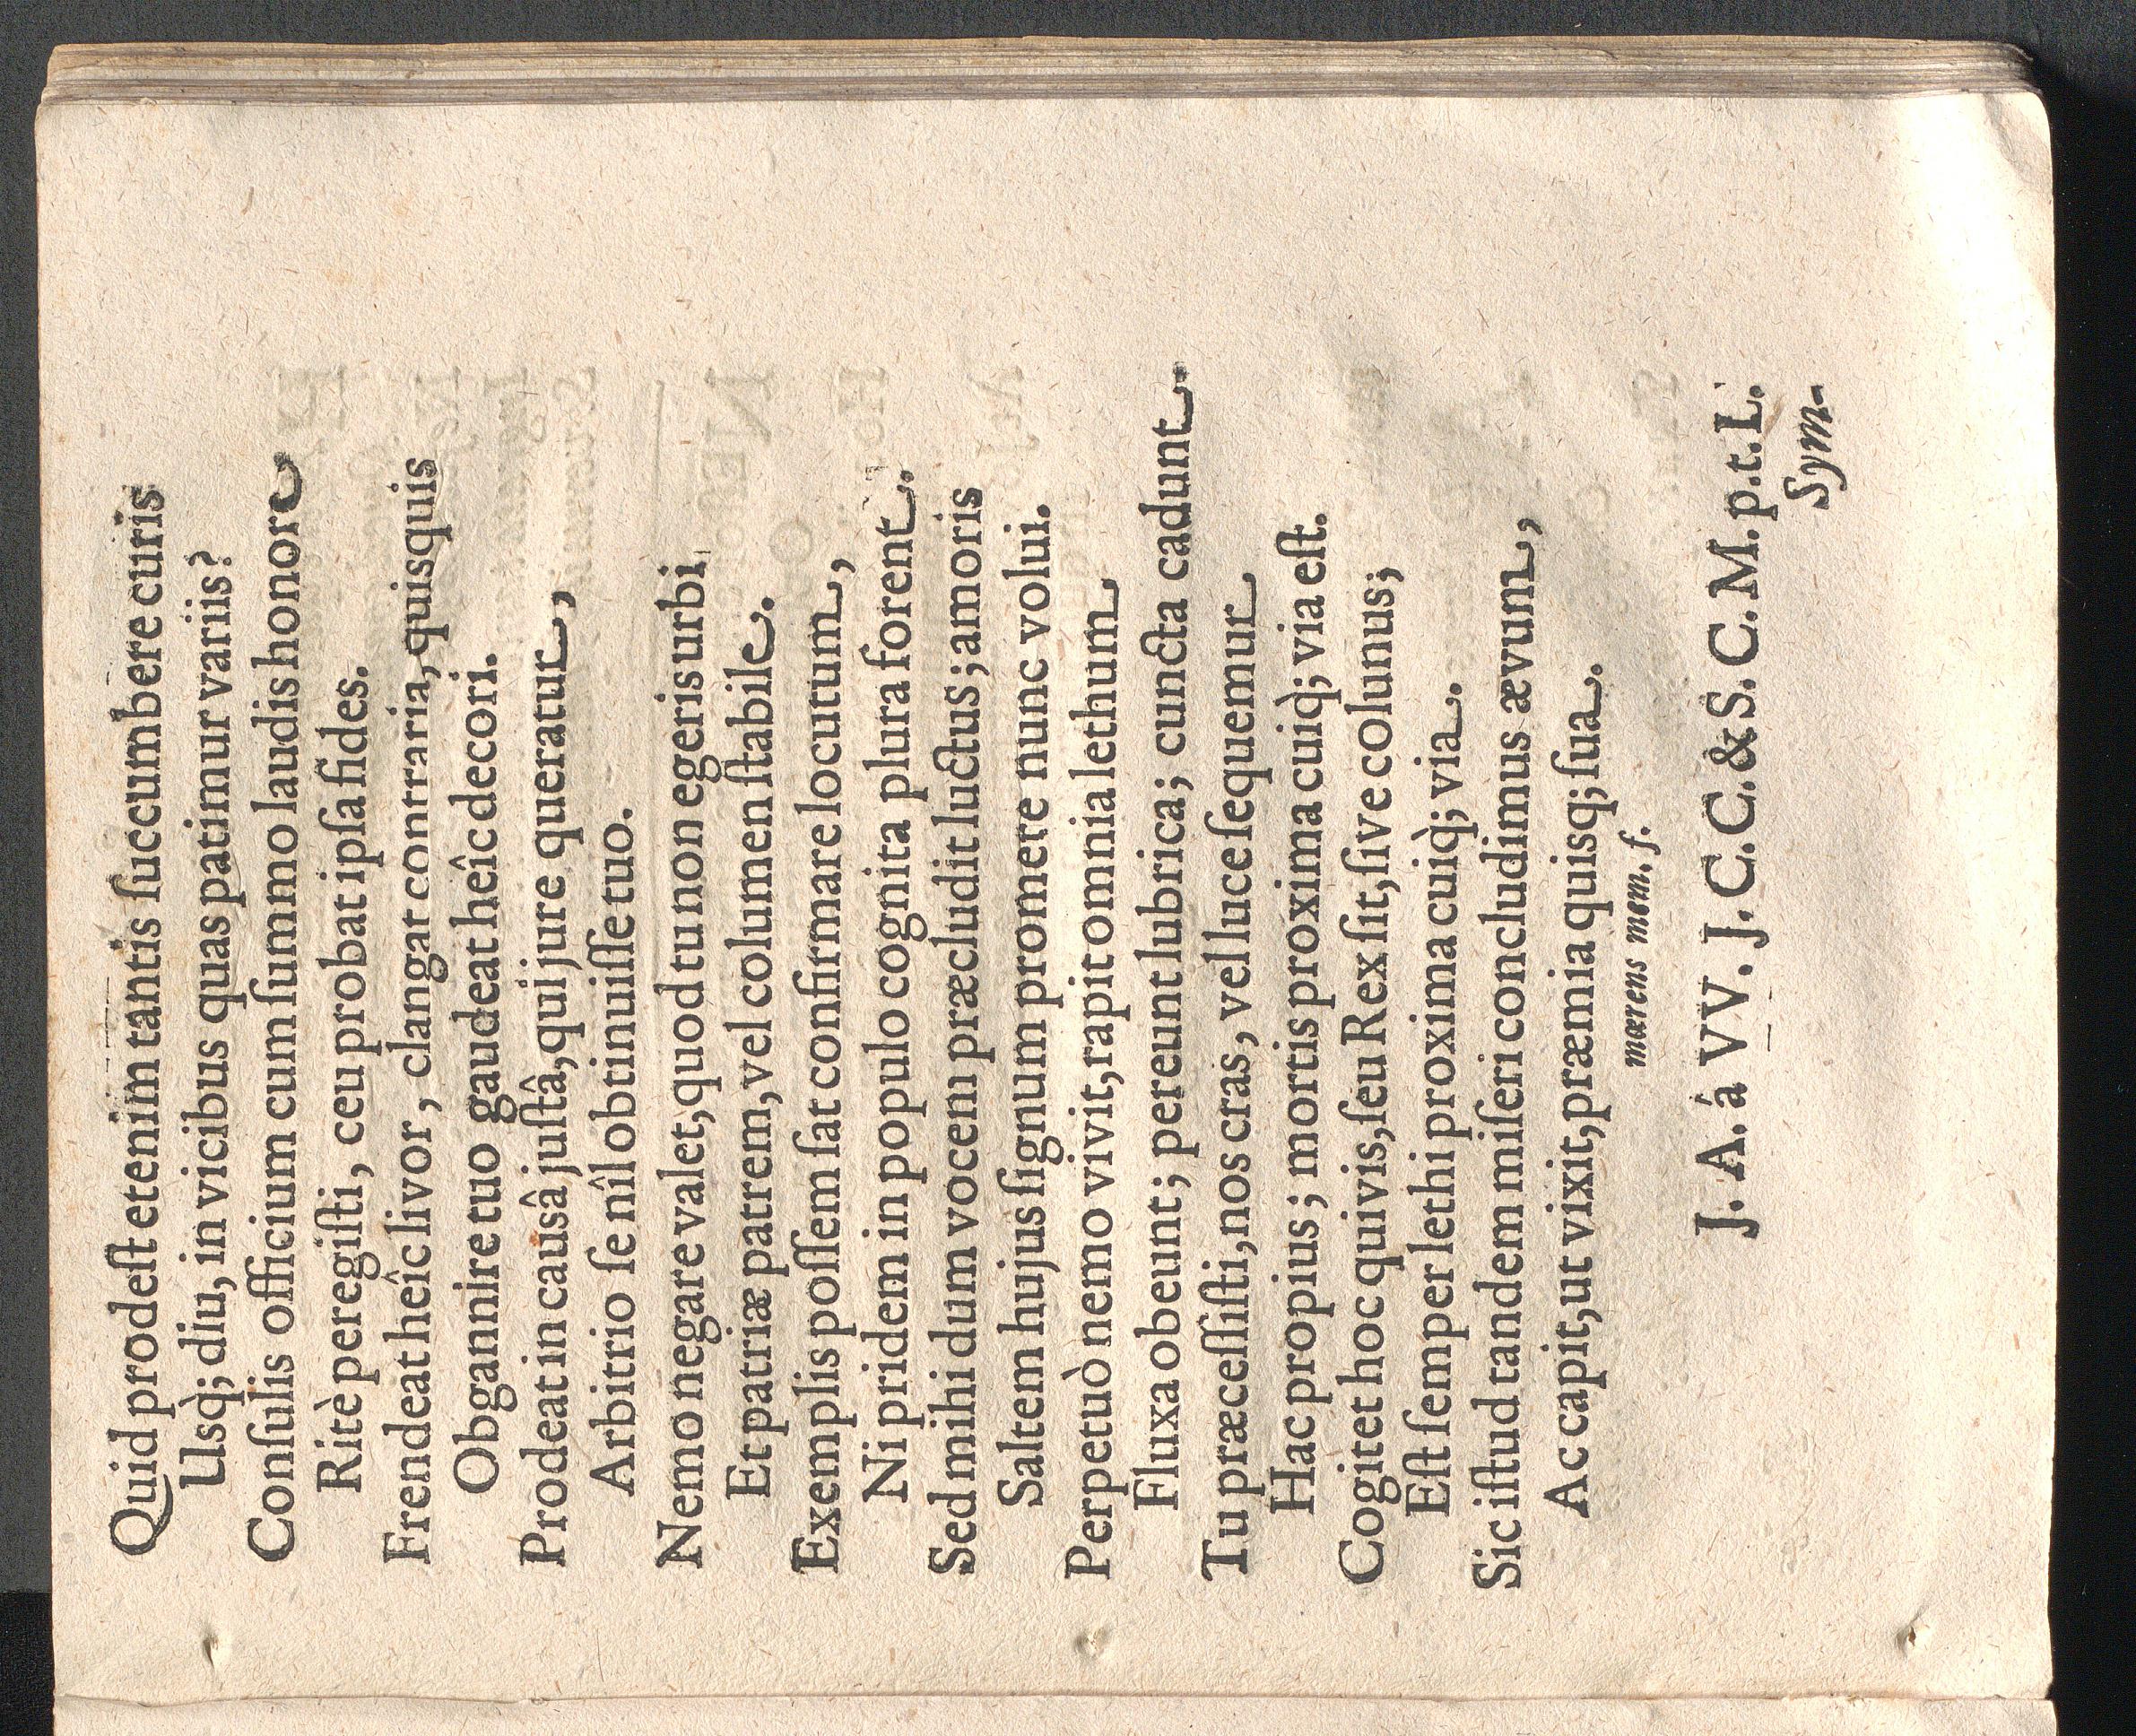 Quid prodeſt etenim tantis ſuccumbere curis
Usq́; diu, in vicibus quas patimur variis?
Conſulis officium cum ſummo laudis honore
Ritè peregiſti, ceu probat ipſa fides.
Frendeat heîc livor, clangat contraria, quisquis
Obgannire tuo gaudeat heîc decori.
Prodeat in causâ juſtâ, qui jure queratur,
Arbitrio ſe nîl obtinuiſſe tuo.
Nemo negare valet, quod tu non egeris urbi
Et patriæ patrem, vel columen ſtabile.
Exemplis poſſem ſat confirmare locutum,
Ni pridem in populo cognita plura forent.
Sed mihi dum vocem præcludit luctus; amoris
Saltem hujus ſignum promere nunc volui.
Perpetuò nemo vivit, rapit omnia lethum
Fluxa obeunt; pereunt lubrica; cuncta cadunt.
Tu præceſſiſti, nos cras, vel luce ſequemur
Hac propius; mortis proxima cuiq̀; via eſt.
Cogitet hoc quivis, ſeu Rex ſit, ſive colonus;
Eſt ſemper lethi proxima cuiq̀; via.
Sic iſtud tandem miſeri concludimus ævum,
Ac capit, ut vixit, præmia quisq; ſua.
mœrens mem. f.
J. A. à VV. J. C. C. & S. C. M. p. t. L.
Sym-